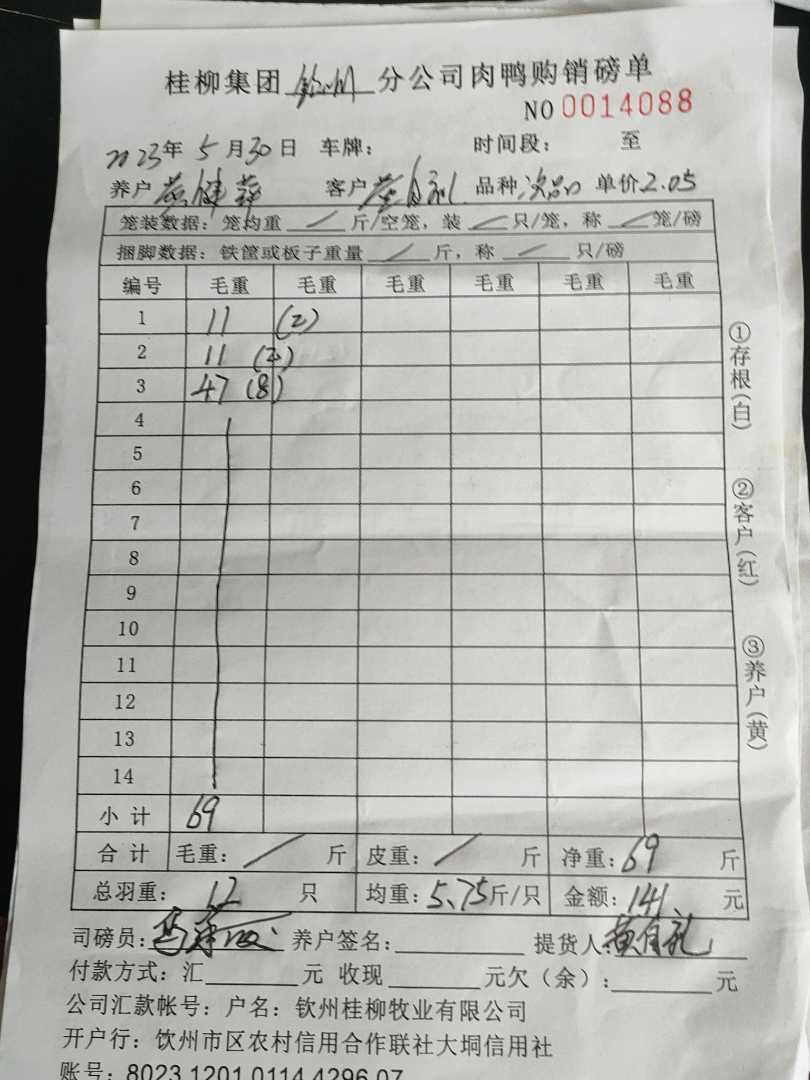 桂柳集团 钦州 分公司肉鸭购销磅单
NO 0014088
2023年 5 月 30 日 车牌： 时间段： 至
养户 黄健萍 客户 黄自礼 品种 次品 单价 2.05
笼装数据：笼均重 / 斤/空笼，装 / 只/笼，称 / 笼/磅
捆脚数据：铁筐或板子重量 / 斤，称 / 只/磅
编号 毛重 毛重 毛重 毛重 毛重 毛重
1 11 (2)
2 11 (2)
3 47 (8)
4
5
6
7
8
9
10
11
12
13
14
小计 69
合计 毛重： / 斤 皮重： / 斤 净重：69 斤
总羽重： 12 只 均重：5.75斤/只 金额：141 元
司磅员： 养户签名： 提货人：黄自礼
付款方式：汇 元 收现 元欠（余）： 元
公司汇款帐号：户名：钦州桂柳牧业有限公司
开户行：饮州市区农村信用合作联社大垌信用社
账号：8023 1201 0114 4296 07
①存根(白)
②客户(红)
③养户(黄)